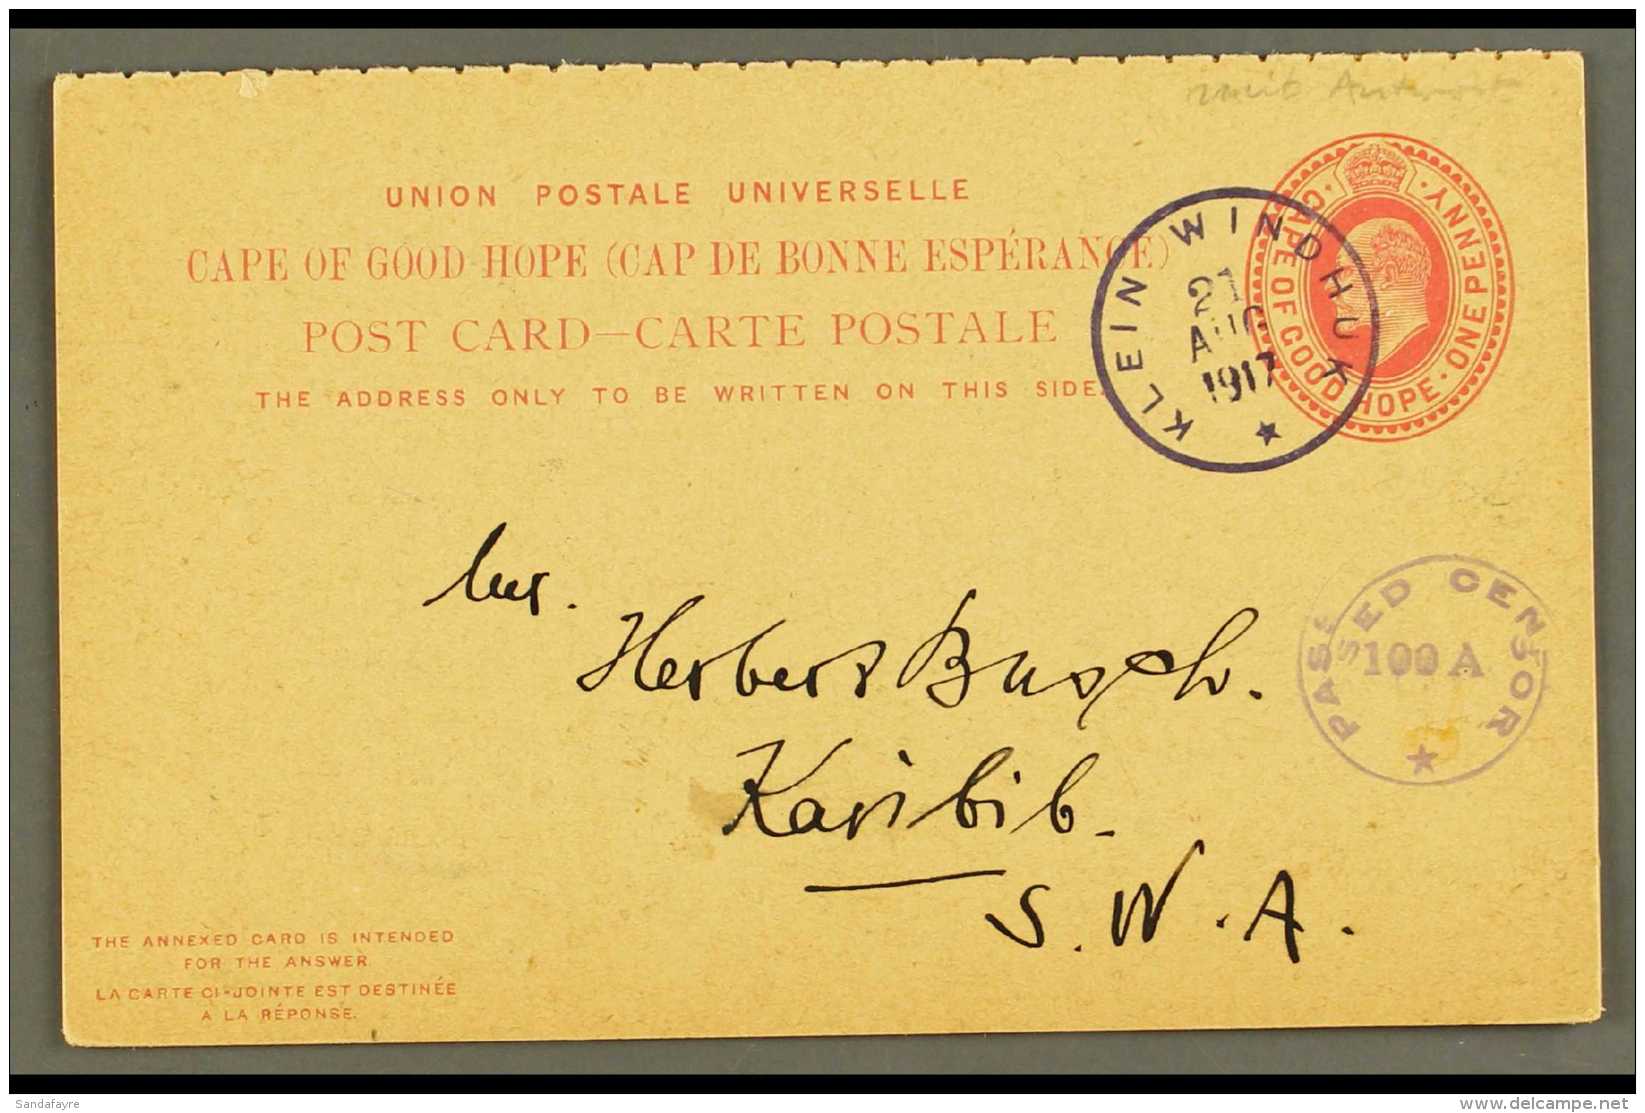 mit Antwort
UNION POSTALE UNIVERSELLE
CAPE OF GOOD HOPE (CAP DE BONNE ESPÉRANCE)
POST CARD—CARTE POSTALE
THE ADDRESS ONLY TO BE WRITTEN ON THIS SIDE.
CAPE OF GOOD HOPE · ONE PENNY
KLEIN WINDHUK
21
AUG
1917
Mr.
Herbert Busch.
Karibib.
S. W. A.
PASSED CENSOR
100 A
THE ANNEXED CARD IS INTENDED
FOR THE ANSWER.
LA CARTE CI-JOINTE EST DESTINÉE
A LA RÉPONSE.
Sandafayre
delcampe.net